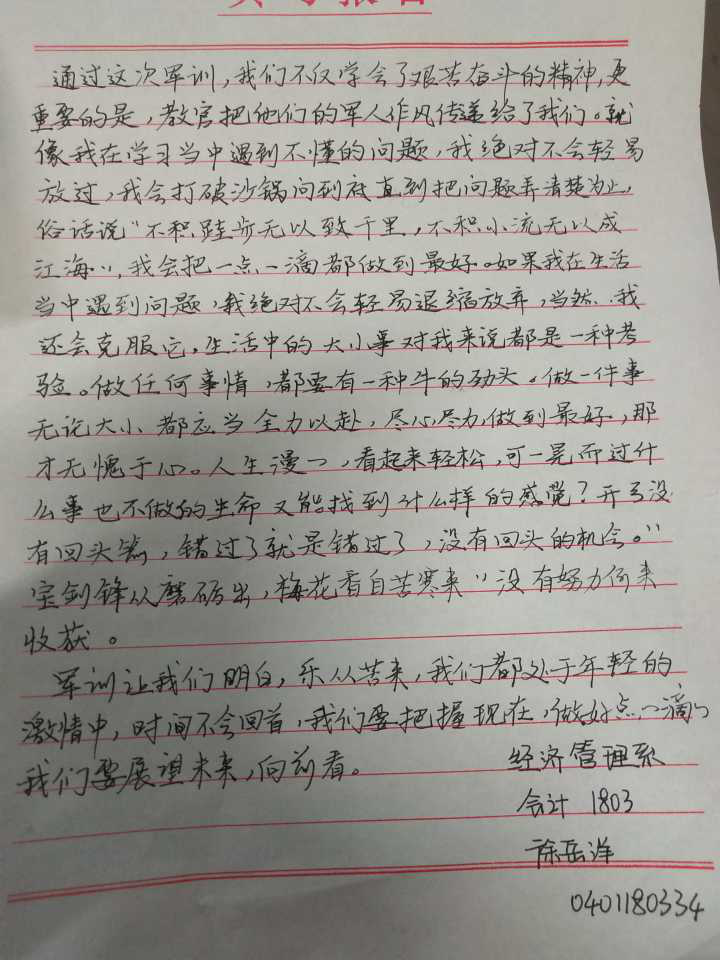 通过这次军训，我们不仅学会了艰苦奋斗的精神，更
重要的是，教官把他们的军人作风传递给了我们。就
像我在学习当中遇到不懂的问题，我绝对不会轻易
放过，我会打破沙锅问到底直到把问题弄清楚为止，
俗话说“不积跬步无以致千里，不积小流无以成
江海”，我会把一点一滴都做到最好。如果我在生活
当中遇到问题，我绝对不会轻易退缩放弃，当然，我
还会克服它，生活中的大小事对我来说都是一种考
验。做任何事情，都要有一种牛的劲头。做一件事
无论大小都应当全力以赴，尽心尽力，做到最好，那
才无愧于心。人生漫一，看起来轻松，可一晃而过什
么事也不做的生命又能找到什么样的感觉？开弓没
有回头箭，错过了就是错过了，没有回头的机会。“
宝剑锋从磨砺出，梅花香自苦寒来”没有努力何来
收获。
军训让我们明白，乐从苦来，我们都处于年轻的
激情中，时间不会回首，我们要把握现在，做好点一滴，
我们要展望未来，向前看。
经济管理系
会计 1803
徐岳洋
0401180334